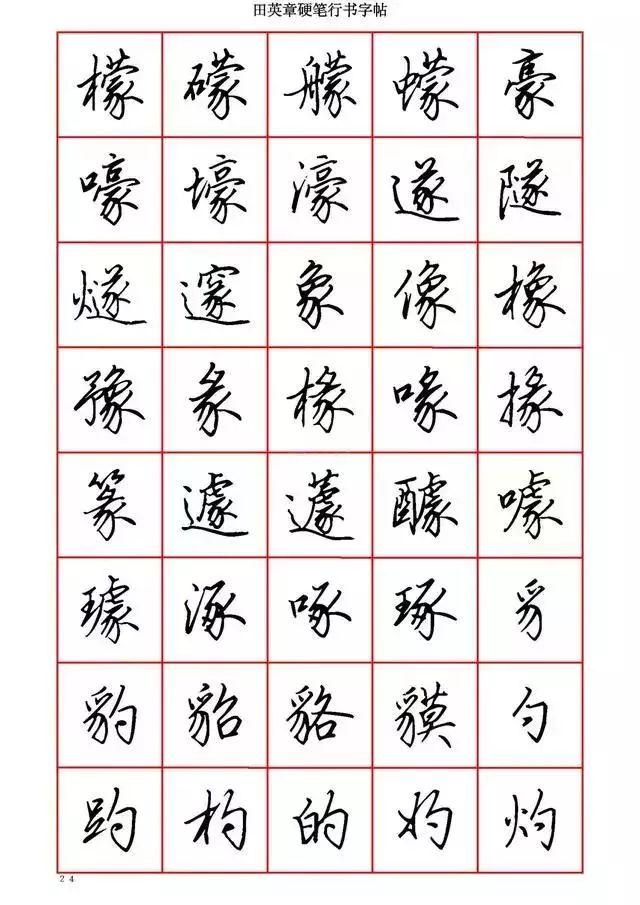 田英章硬笔行书字帖
檬 礞 艨 蠓 豪
嚎 壕 濠 遂 隧
燧 邃 象 像 橡
豫 彖 椽 喙 掾
篆 遽 蘧 醵 噱
璩 涿 啄 琢 豸
豹 貂 貉 貘 勺
趵 杓 的 妁 灼
24